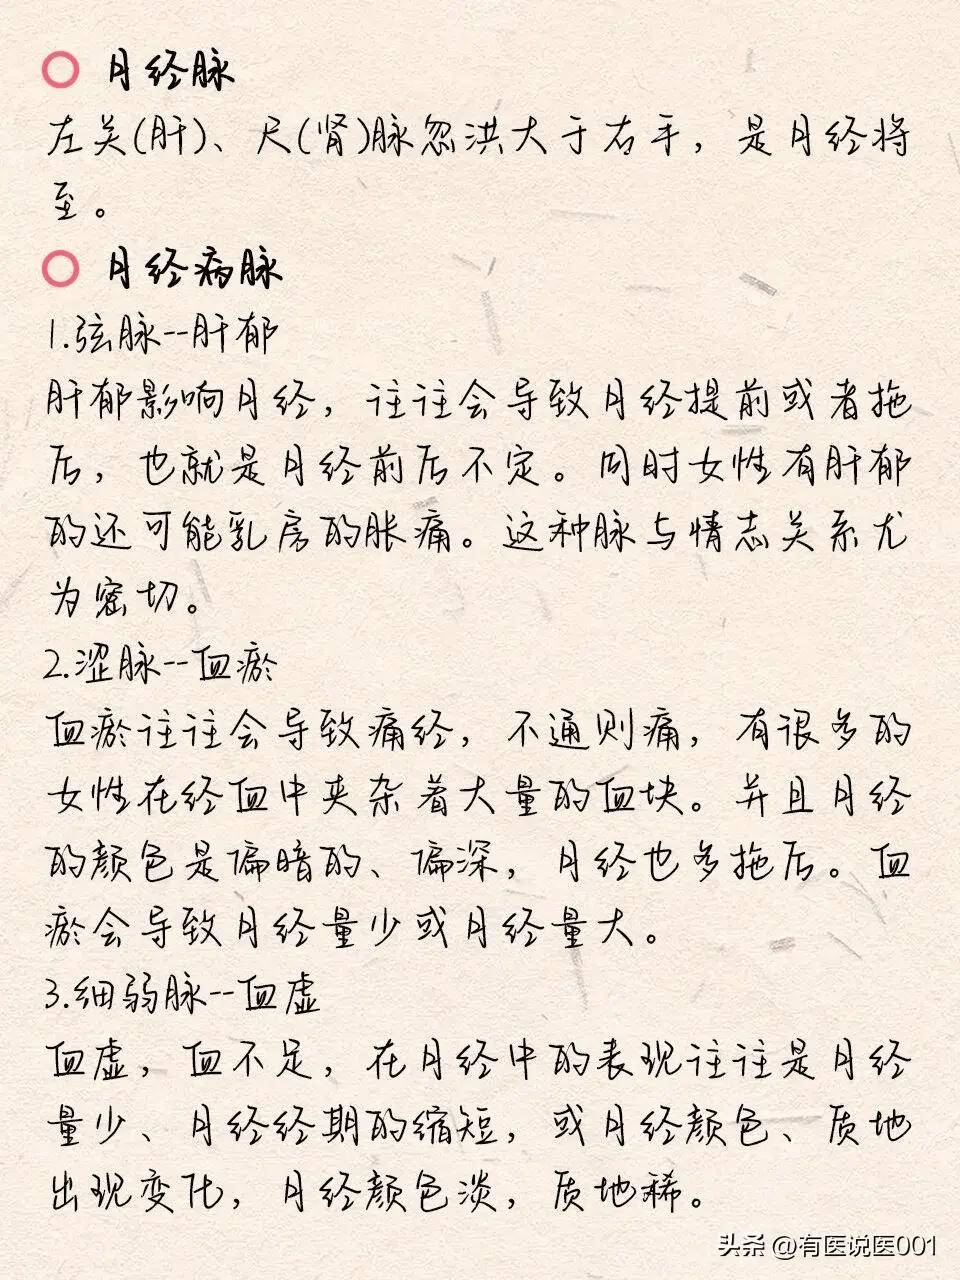 月经脉
左关(肝)、尺(肾)脉忽洪大于右手，是月经将
至。
月经病脉
1.弦脉--肝郁
肝郁影响月经，往往会导致月经提前或者拖
后，也就是月经前后不定。同时女性有肝郁
的还可能乳房的胀痛。这种脉与情志关系尤
为密切。
2.涩脉--血瘀
血瘀往往会导致痛经，不通则痛，有很多的
女性在经血中夹杂着大量的血块。并且月经
的颜色是偏暗的、偏深，月经也多拖后。血
瘀会导致月经量少或月经量大。
3.细弱脉--血虚
血虚，血不足，在月经中的表现往往是月经
量少、月经经期的缩短，或月经颜色、质地
出现变化，月经颜色淡，质地稀。
头条 @有医说医001